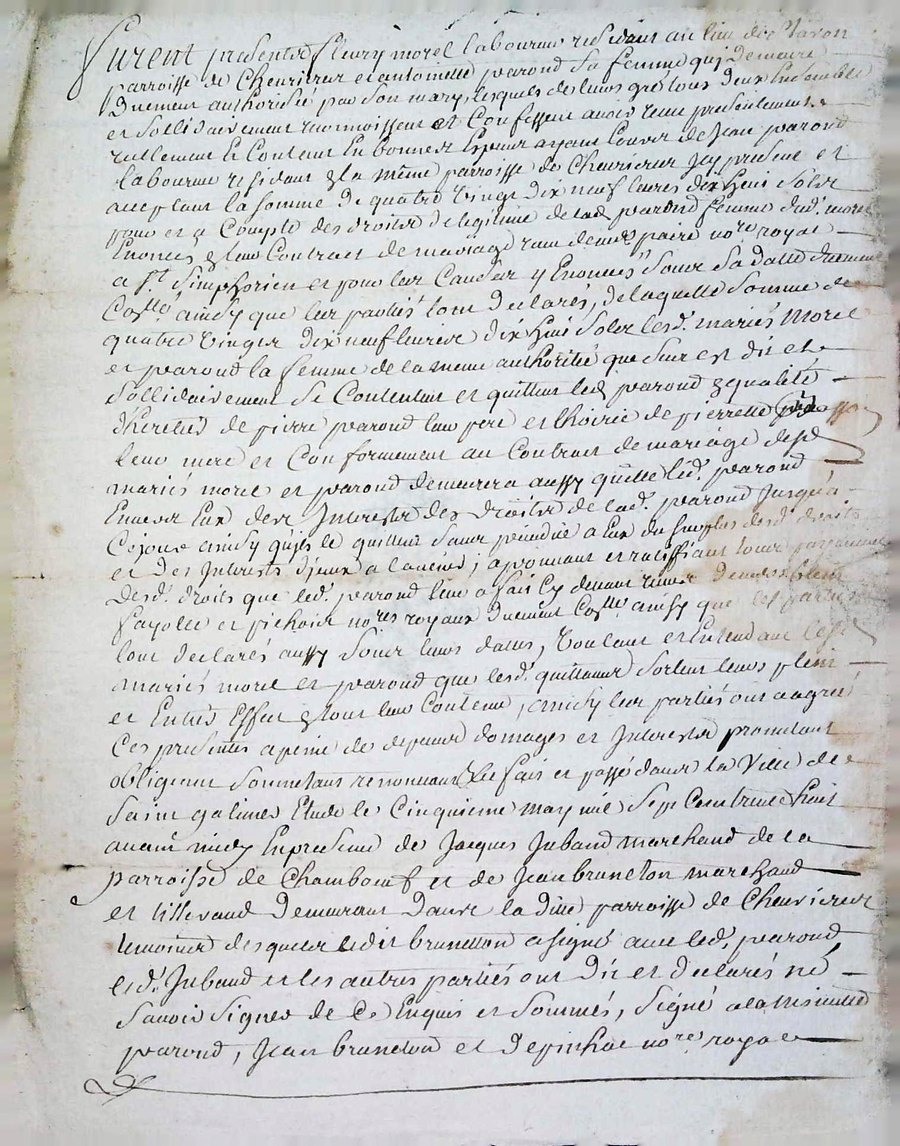 furent presents fleury morel laboureur residant au lieu des
parroisse de Chevrieres et antoinette parond sa femme qui demeure
Duement authorisée par son mary, lesquels de leurs gré tous deux Ensemble
et sollidairement reconnoissent et Confessent avoir receu presentement
reellement et Contant En bonnes Especes ayant Cours de Jean parond
laboureur residant la même parroisse de Chevrieres Icy present et
acceptant la somme de quatre vingt dix neuf livres dix huit sols
pour et a Compte des droits de legitime de lad. parond femme dud. morel
Enoncés leur Contract de mariage receu de me paire nore royal
a st Simphorien et pour les Causes y Enoncées sous sa datte duement
Collé ainsy que les partiés l'ont declarés, de laquelle somme de
quatre vingts dix neuf livres dix huit sols lesd. mariés Morel
et parond la femme de la meme authorité que sus est dit et
sollidairement se Contentent et quittent led. parond qualité
d'heretier de pierre parond leur pere et de pierrette
leur mere et Conformement au Contract de mariage desd.
mariés morel et parond demeurera aussy quitte led. parond
Envers Eux des Interests des droits de lad. parond Jusqu'a
Cejour ainsy qu'ils le quittent sans prejudice a Eux du surplus desd. droits
et des Interests d'iceux a l'avenir; aprouvant et ratiffiant tous payements
Desd. droits que led. parond leur a fait Cy devant receus de mes
fayolle et pichon nores royaux Duement Collé ainsy que les parties
l'ont declarés aussy sous leurs dattes, voulant et Entendant lesd.
mariés morel et parond que lesd. quittances sortent leurs plein
et Entier Effet tout leur Contenu, ainsy les partiés ont aagreé
Ces presentes a peine de depens domages et Interests promettant
obligeant soumettant renonceant &c fait et passé dans la Ville de
Saint galmier Etude le Cinquieme may mil Sept Cent trente huit
avant midy En presence de Jacques Jubaud marchand de la
parroisse de Chambœuf et de Jean bruneton marchand
et tisserand Demeurant Dans la ditte parroisse de Chevrieres
temoins desquels ledit bruneton a signé avec led. parond
led. Jubaud et les autres partiés ont Dit et declarés né
Savoir signer de Ce Enquis et Sommés, Signé a la minutte
parond, Jean bruneton et depinhac nore royal